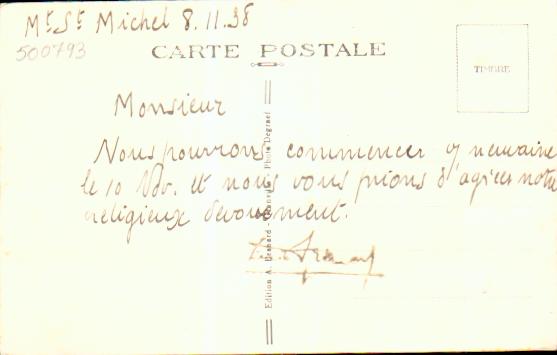 Mt. St. Michel 8.11.38
500793
CARTE POSTALE
TIMBRE
Monsieur
Nous pourrons commencer neuvaine
le 10 Nov. et nous vous prions d'agréer notre
religieux dévouement.
Edition A. Photo Degraef